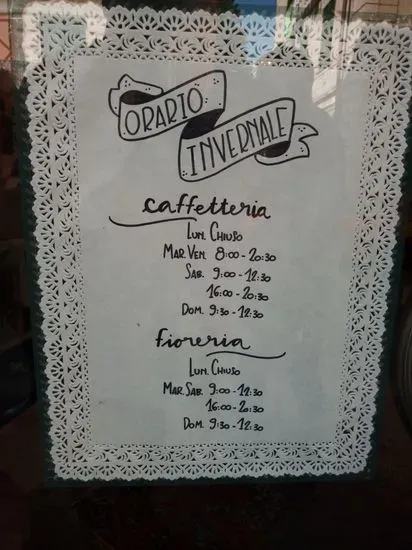 ORARIO
INVERNALE
caffetteria
LUN. CHIUSO
MAR.VEN. 8:00-20:30
SAB. 9:00-12:30
16:00-20:30
DOM. 9:30-12:30
fioreria
LUN. CHIUSO
MAR.SAB. 9:00-12:30
16:00-20:30
DOM. 9:30-12:30